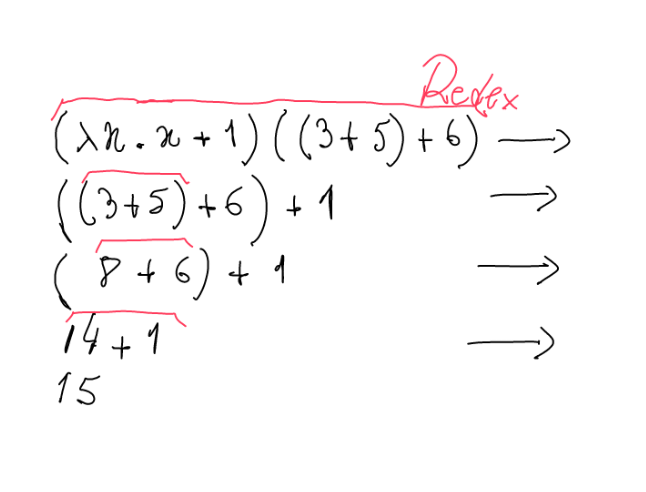 Redex
(λx . x + 1) ((3+5) + 6) →
((3+5) + 6) + 1 →
( 8 + 6) + 1 →
14 + 1 →
15